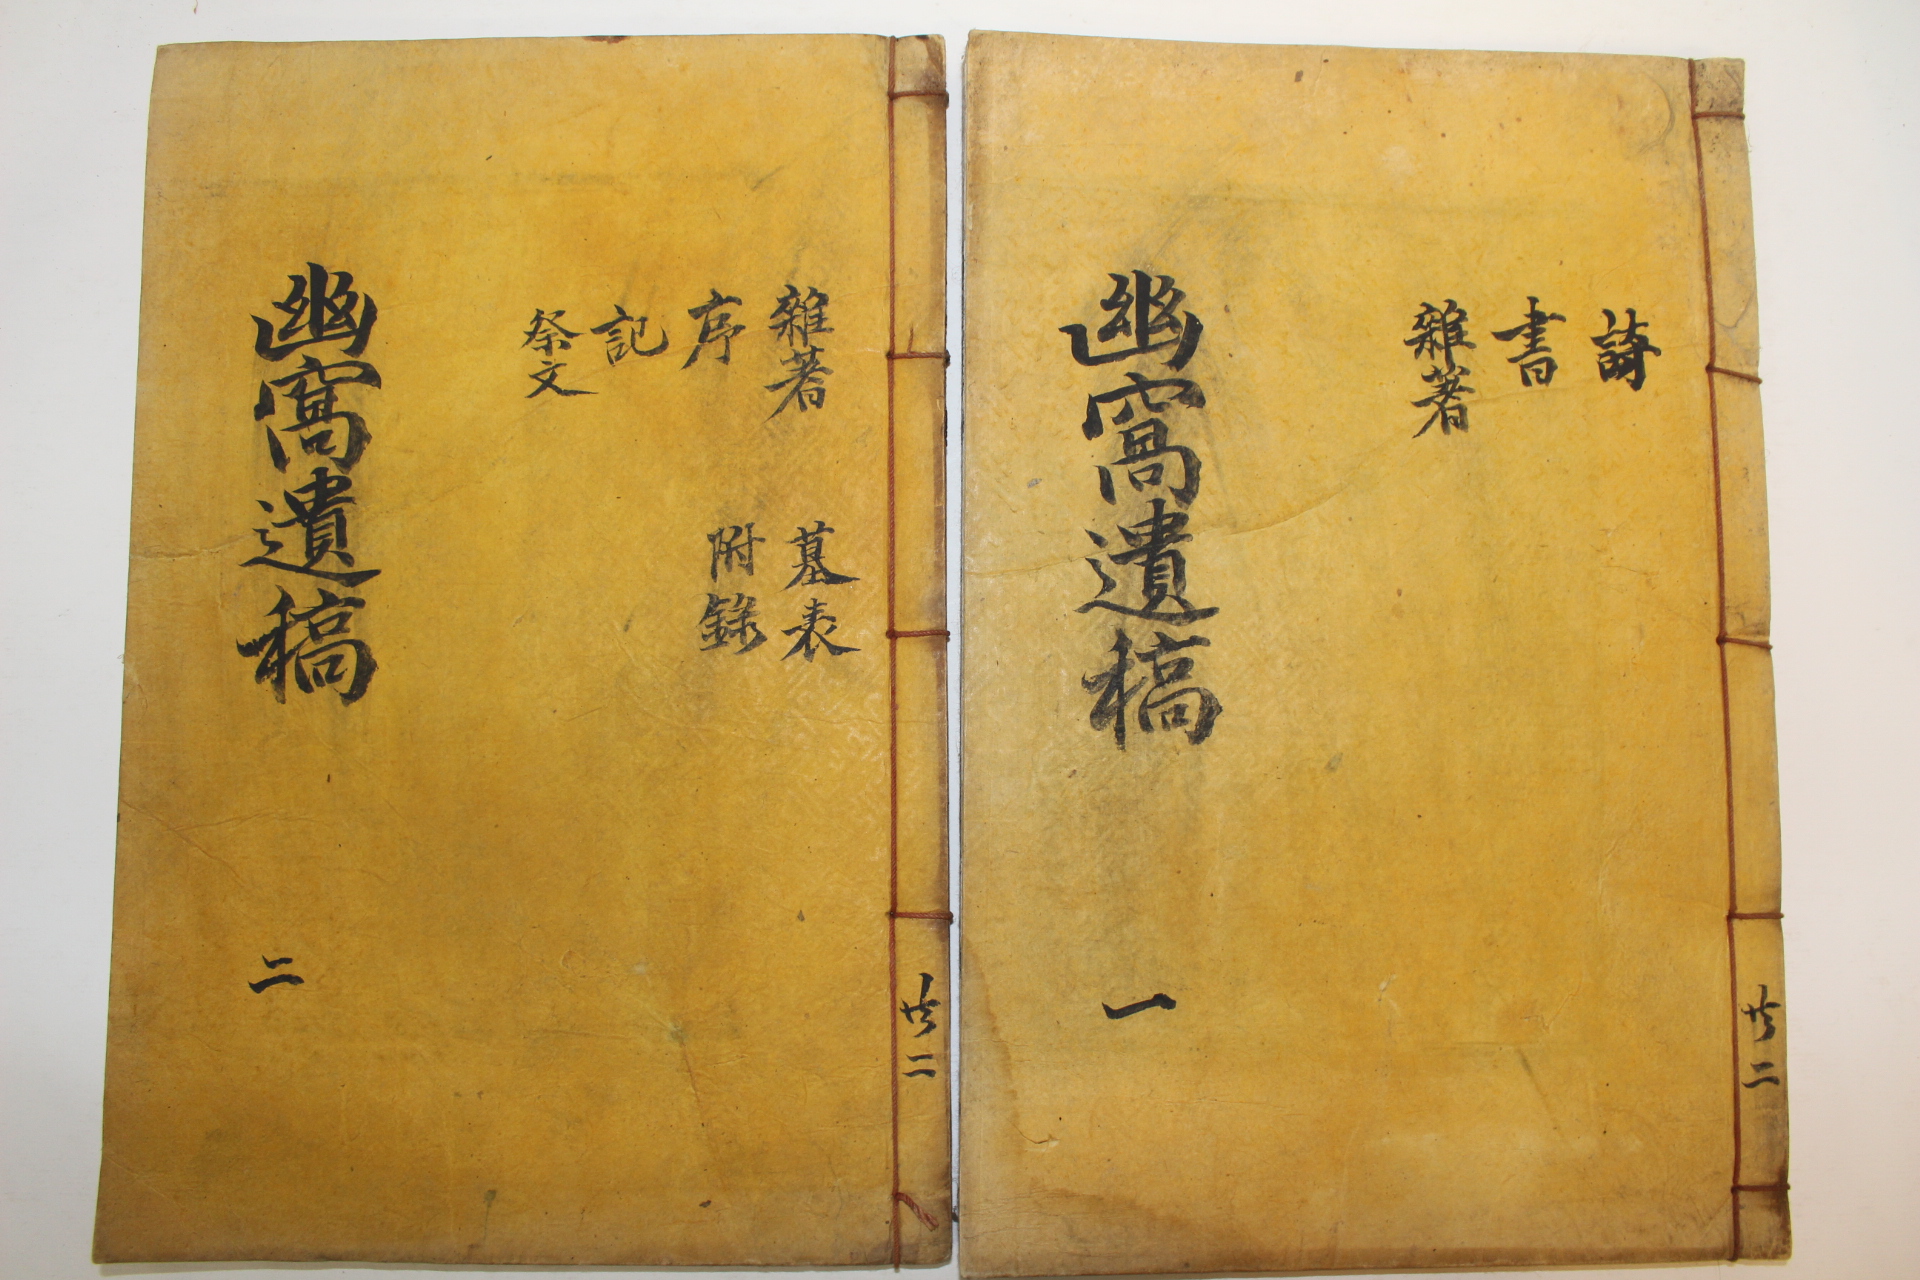 詩
書
雜著
幽窩遺稿
一
共二
雜著
序
記
祭文
墓表
附錄
幽窩遺稿
二
共二